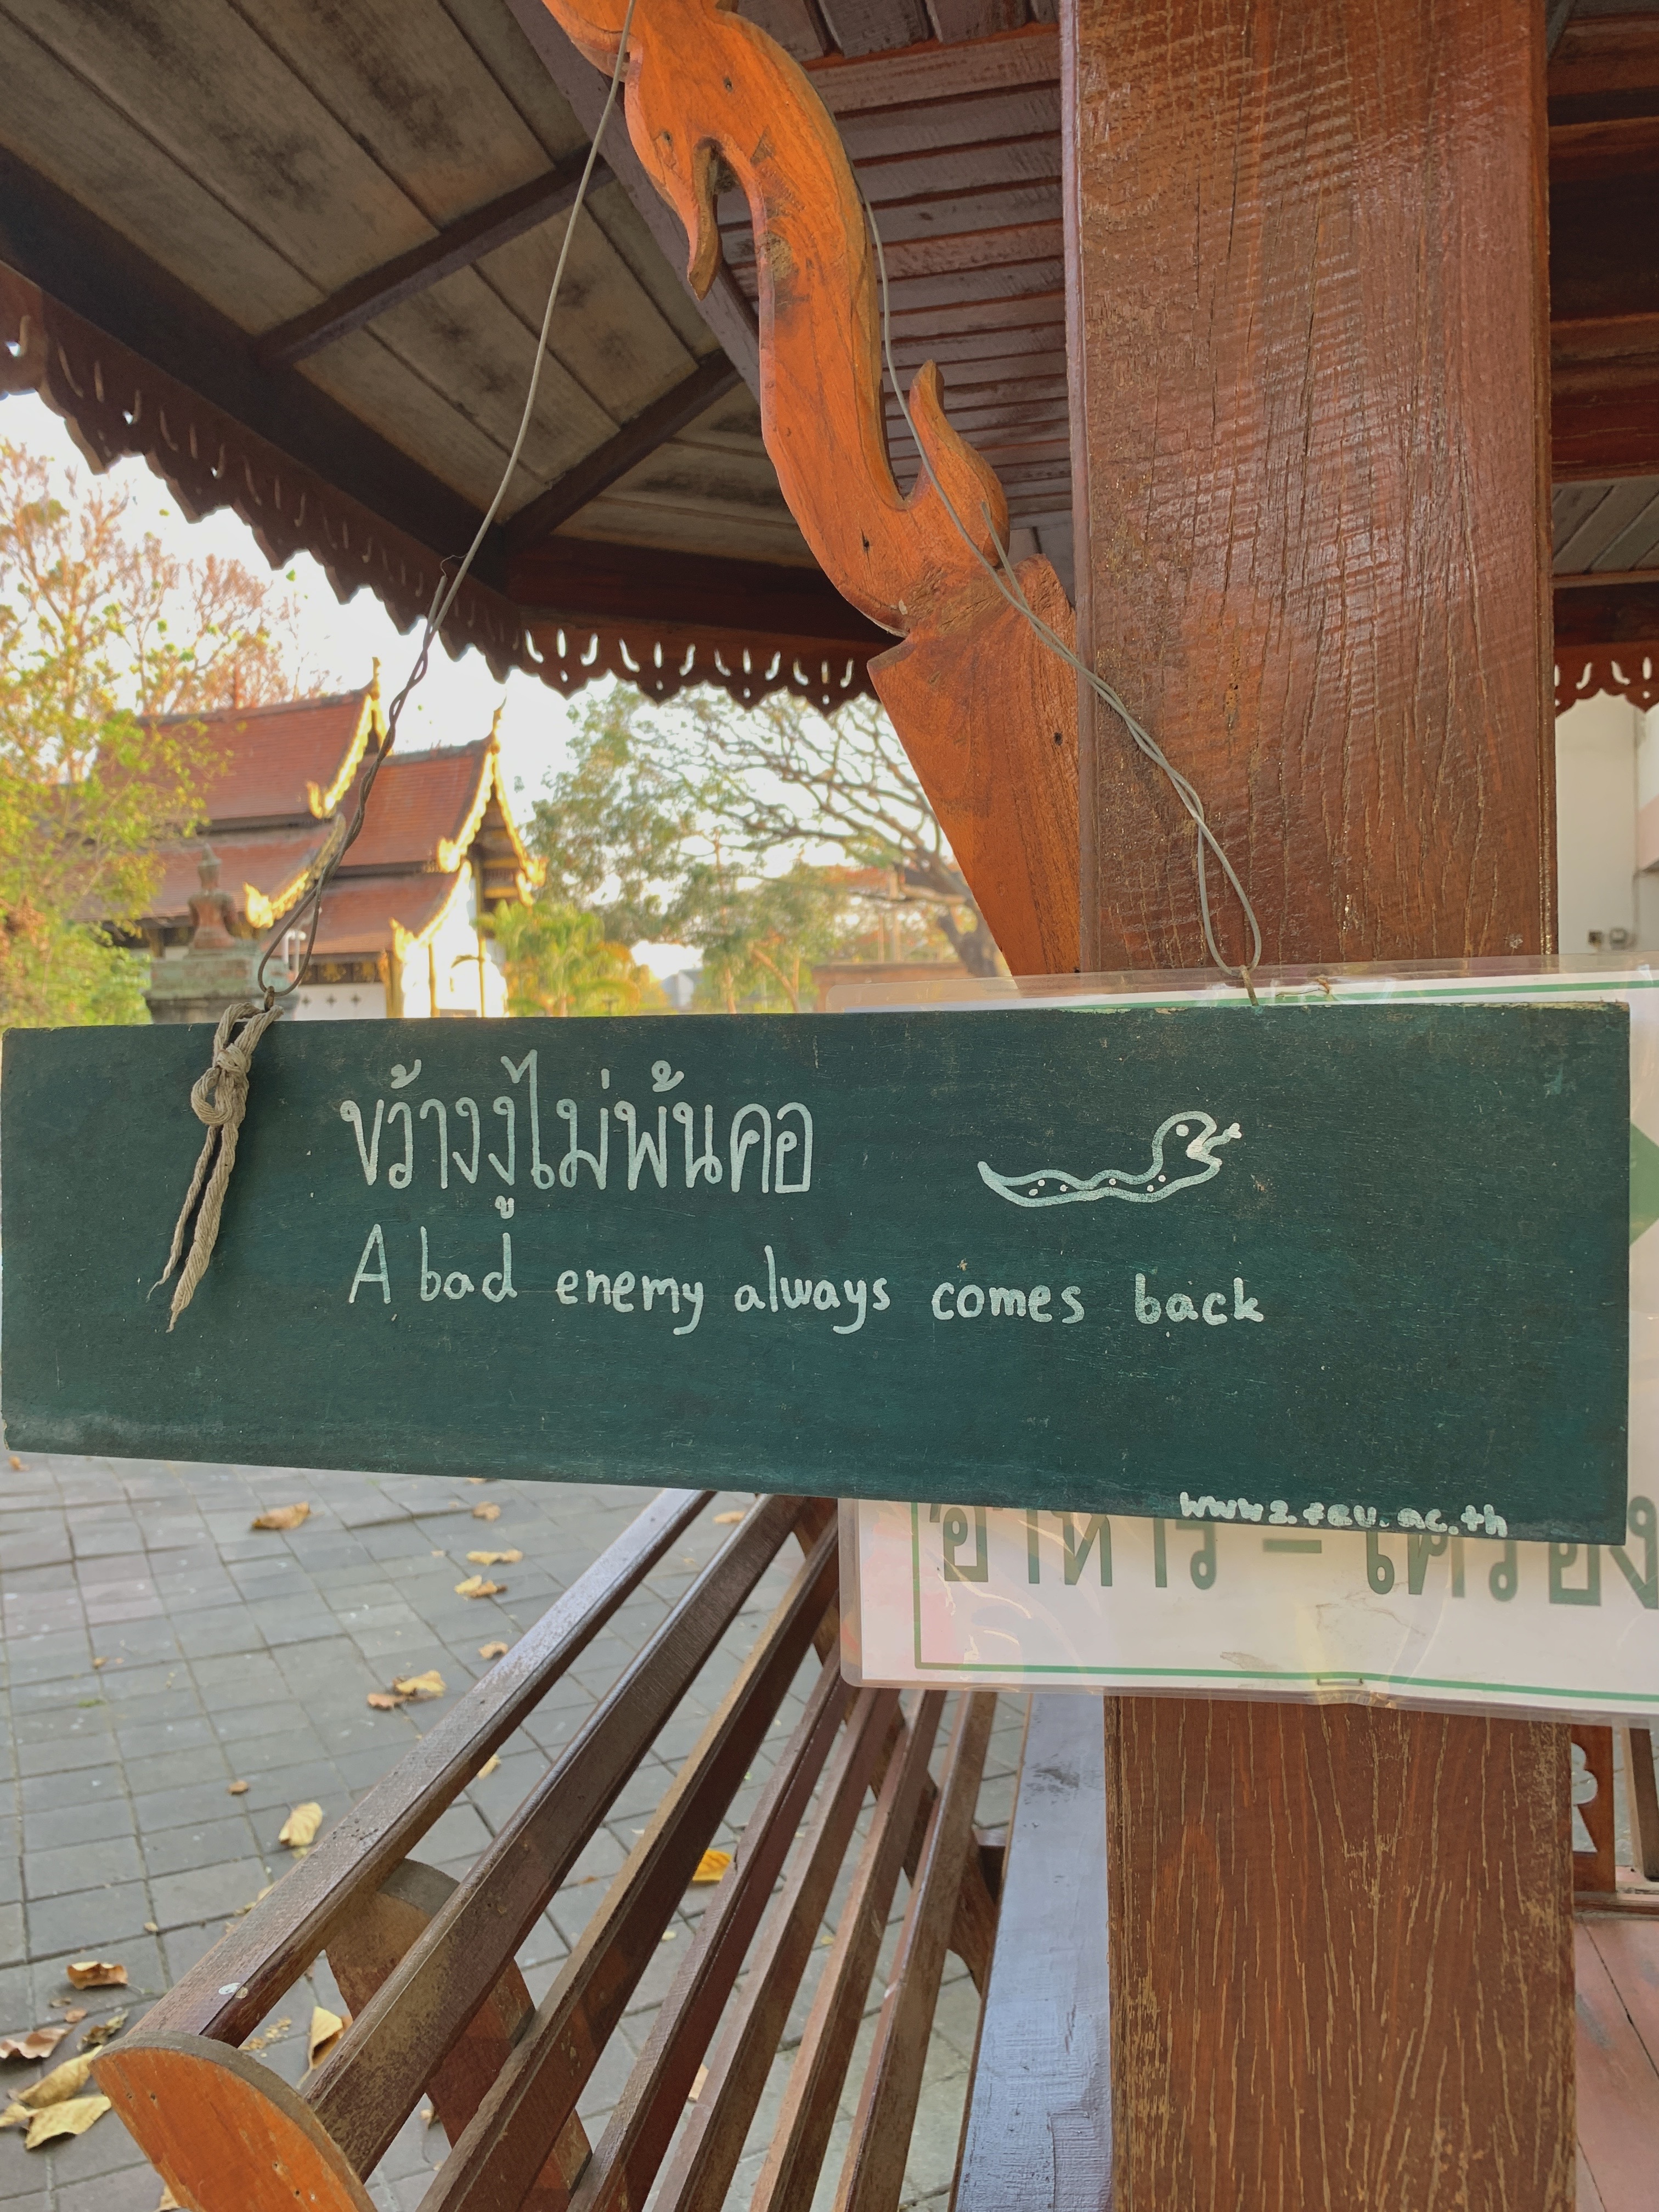 ขว้างงูไม่พ้นคอ
A bad enemy always comes back
www2.feu.ac.th